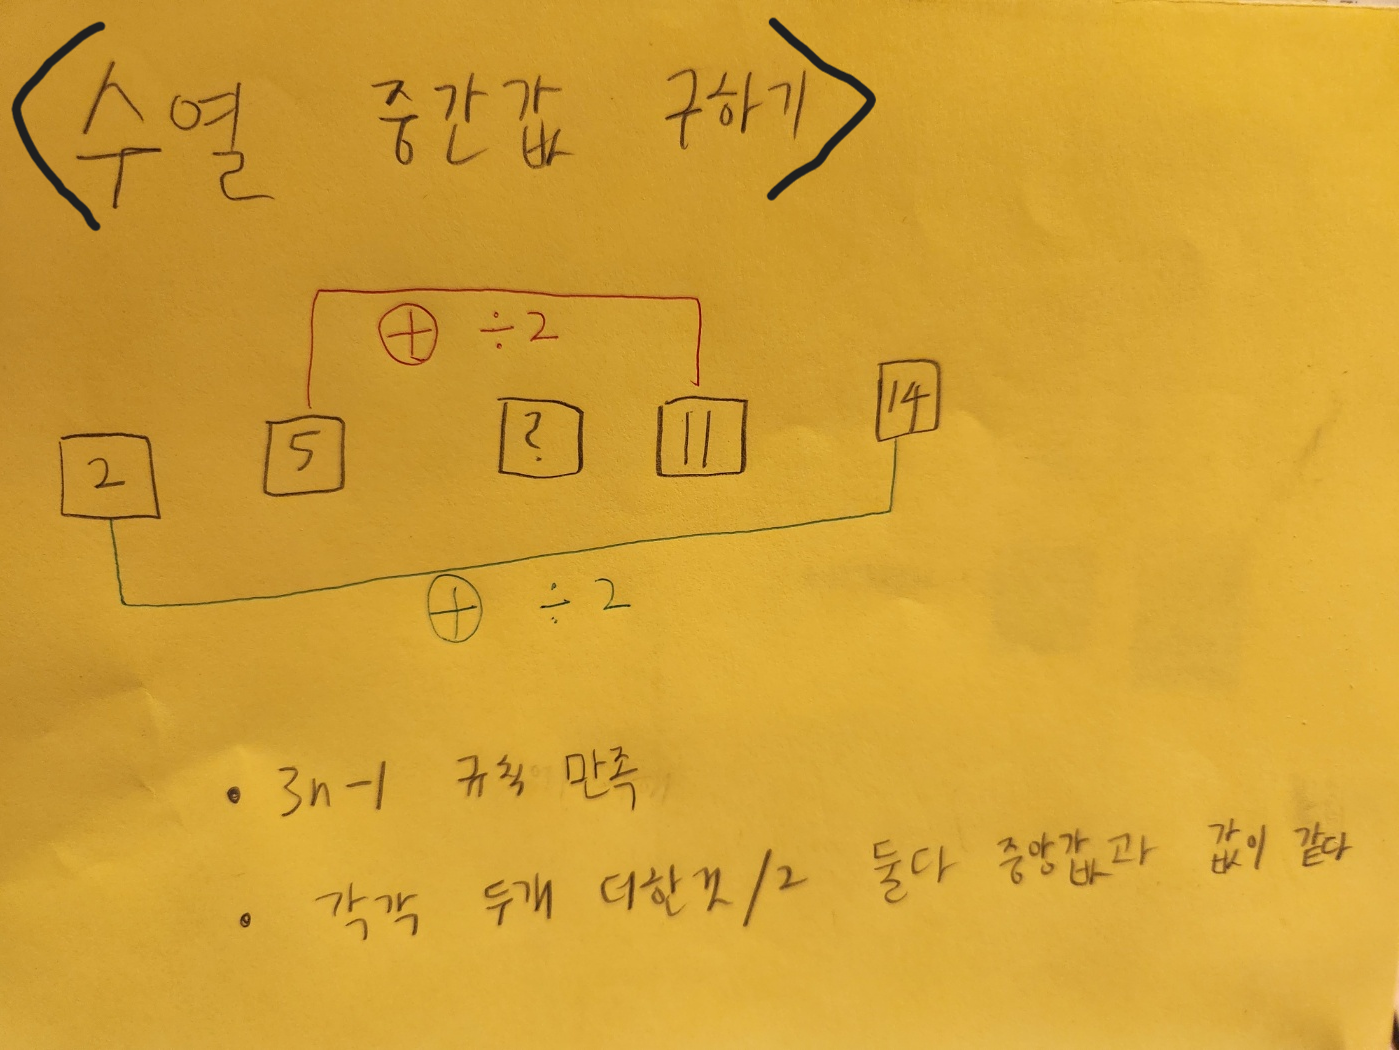 <수열 중간값 구하기>
⊕ ÷2
2 5 ? 11 14
⊕ ÷2
• 3n-1 규칙 만족
• 각각 두개 더한것/2 둘다 중앙값과 값이 같다